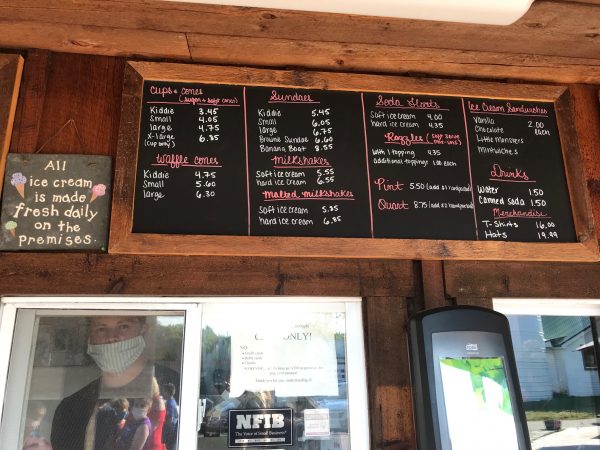 All
ice cream
is made
fresh daily
on the
premises.
Cups & Cones
(sugar & safe cones)
Kiddie 3.45
Small 4.05
large 4.75
X-large 6.35
(cup only)
Waffle Cones
Kiddie 4.75
Small 5.60
large 6.30
Sundaes
Kiddie 5.45
Small 6.05
large 6.75
Brownie Sundae 6.60
Banana Boat 8.55
Milkshakes
Soft ice cream 5.55
hard ice cream 6.55
Malted Milkshakes
Soft ice cream 5.85
hard ice cream 6.85
Soda Floats
Soft ice cream 4.00
hard ice cream 4.35
Razzles (soft serve
mix-ins)
with 1 topping 4.35
additional toppings 1.00 each
Pint 5.50 (add $1 handpacked)
Quart 8.75 (add $2 handpacked)
Ice Cream Sandwiches
Vanilla 2.00
Chocolate each
Little Monsters
Mintwiches
Drinks
Water 1.50
Canned Soda 1.50
Merchandise
T-Shirts 16.00
Hats 19.99
ONLY!
NO
Thank you for understanding!!!
NFIB
The Voice of Small Business